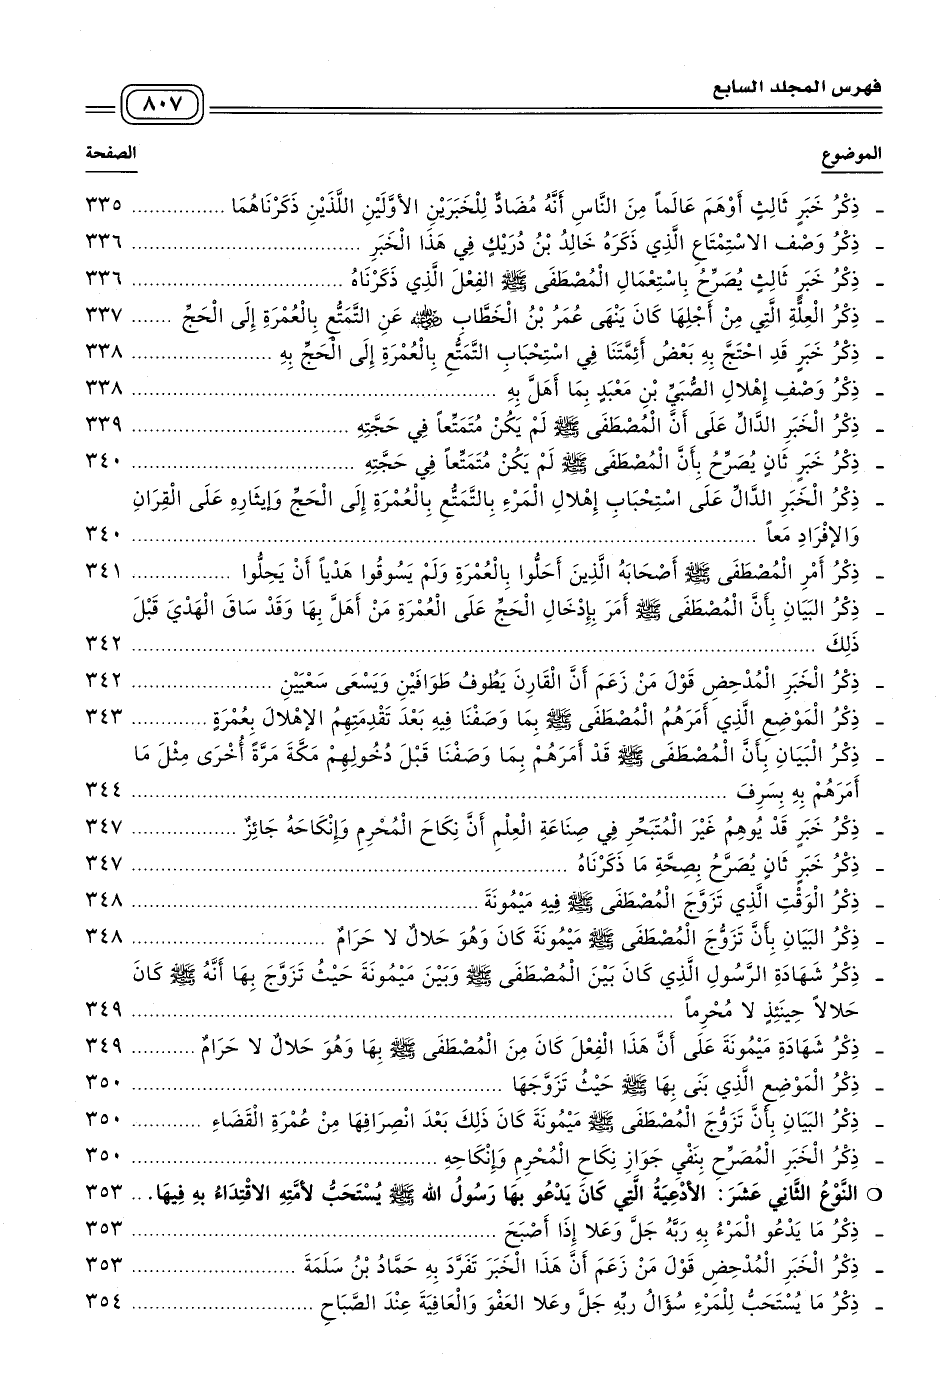 فهرس المجلد السابع
٨٠٧
الموضوع الصفحة
- ذِكْرُ خَبَرٍ ثَالِثٍ أَوْهَمَ عَالَماً مِنَ النَّاسِ أَنَّهُ مُضَادٌّ لِلْخَبَرَيْنِ الأَوَّلَيْنِ اللَّذَيْنِ ذَكَرْنَاهُمَا ................ ٣٣٥
- ذِكْرُ وَصْفِ الاسْتِمْتَاعِ الَّذِي ذَكَرَهُ خَالِدُ بْنُ دُرَيْكٍ فِي هَذَا الْخَبَرِ ................ ٣٣٦
- ذِكْرُ خَبَرٍ ثَالِثٍ يُصَرِّحُ بِاسْتِعْمَالِ الْمُصْطَفَى ﷺ الفِعْلَ الَّذِي ذَكَرْنَاهُ ................ ٣٣٦
- ذِكْرُ الْعِلَّةِ الَّتِي مِنْ أَجْلِهَا كَانَ يَنْهَى عُمَرُ بْنُ الْخَطَّابِ رضي الله عنه عَنِ التَّمَتُّعِ بِالْعُمْرَةِ إِلَى الْحَجِّ ...... ٣٣٧
- ذِكْرُ خَبَرٍ قَدِ احْتَجَّ بِهِ بَعْضُ أَئِمَّتِنَا فِي اسْتِحْبَابِ التَّمَتُّعِ بِالْعُمْرَةِ إِلَى الْحَجِّ بِهِ ................ ٣٣٨
- ذِكْرُ وَصْفِ إِهْلالِ الصُّبَيِّ بْنِ مَعْبَدٍ بِمَا أَهَلَّ بِهِ ................ ٣٣٨
- ذِكْرُ الْخَبَرِ الدَّالِّ عَلَى أَنَّ الْمُصْطَفَى ﷺ لَمْ يَكُنْ مُتَمَتِّعاً فِي حَجَّتِهِ ................ ٣٣٩
- ذِكْرُ خَبَرٍ ثَانٍ يُصَرِّحُ بِأَنَّ الْمُصْطَفَى ﷺ لَمْ يَكُنْ مُتَمَتِّعاً فِي حَجَّتِهِ ................ ٣٤٠
- ذِكْرُ الْخَبَرِ الدَّالِّ عَلَى اسْتِحْبَابِ إِهْلالِ الْمَرْءِ بِالتَّمَتُّعِ بِالْعُمْرَةِ إِلَى الْحَجِّ وَإِيثَارِهِ عَلَى الْقِرَانِ
وَالإِفْرَادِ مَعاً ................ ٣٤٠
- ذِكْرُ أَمْرِ الْمُصْطَفَى ﷺ أَصْحَابَهُ الَّذِينَ أَحَلُّوا بِالْعُمْرَةِ وَلَمْ يَسُوقُوا هَدْياً أَنْ يَحِلُّوا ................ ٣٤١
- ذِكْرُ البَيَانِ بِأَنَّ الْمُصْطَفَى ﷺ أَمَرَ بِإِدْخَالِ الْحَجِّ عَلَى الْعُمْرَةِ مَنْ أَهَلَّ بِهَا وَقَدْ سَاقَ الْهَدْيَ قَبْلَ
ذَلِكَ ................ ٣٤٢
- ذِكْرُ الْخَبَرِ الْمُدْحِضِ قَوْلَ مَنْ زَعَمَ أَنَّ الْقَارِنَ يَطُوفُ طَوَافَيْنِ وَيَسْعَى سَعْيَيْنِ ................ ٣٤٢
- ذِكْرُ الْمَوْضِعِ الَّذِي أَمَرَهُمُ الْمُصْطَفَى ﷺ بِمَا وَصَفْنَا فِيهِ بَعْدَ تَقْدِمَتِهِمُ الإِهْلالَ بِعُمْرَةٍ ........... ٣٤٣
- ذِكْرُ الْبَيَانِ بِأَنَّ الْمُصْطَفَى ﷺ قَدْ أَمَرَهُمْ بِمَا وَصَفْنَا قَبْلَ دُخُولِهِمْ مَكَّةَ مَرَّةً أُخْرَى مِثْلَ مَا
أَمَرَهُمْ بِهِ بِسَرِفَ ................ ٣٤٤
- ذِكْرُ خَبَرٍ قَدْ يُوهِمُ غَيْرَ الْمُتَبَحِّرِ فِي صِنَاعَةِ الْعِلْمِ أَنَّ نِكَاحَ الْمُحْرِمِ وَإِنْكَاحَهُ جَائِزٌ ................ ٣٤٧
- ذِكْرُ خَبَرٍ ثَانٍ يُصَرِّحُ بِصِحَّةِ مَا ذَكَرْنَاهُ ................ ٣٤٧
- ذِكْرُ الْوَقْتِ الَّذِي تَزَوَّجَ الْمُصْطَفَى ﷺ فِيهِ مَيْمُونَةَ ................ ٣٤٨
- ذِكْرُ البَيَانِ بِأَنَّ تَزَوُّجَ الْمُصْطَفَى ﷺ مَيْمُونَةَ كَانَ وَهُوَ حَلالٌ لا حَرَامٌ ................ ٣٤٨
- ذِكْرُ شَهَادَةِ الرَّسُولِ الَّذِي كَانَ بَيْنَ الْمُصْطَفَى ﷺ وَبَيْنَ مَيْمُونَةَ حَيْثُ تَزَوَّجَ بِهَا أَنَّهُ ﷺ كَانَ
حَلالاً حِينَئِذٍ لا مُحْرِماً ................ ٣٤٩
- ذِكْرُ شَهَادَةِ مَيْمُونَةَ عَلَى أَنَّ هَذَا الْفِعْلَ كَانَ مِنَ الْمُصْطَفَى ﷺ بِهَا وَهُوَ حَلالٌ لا حَرَامٌ .......... ٣٤٩
- ذِكْرُ الْمَوْضِعِ الَّذِي بَنَى بِهَا ﷺ حَيْثُ تَزَوَّجَهَا ................ ٣٥٠
- ذِكْرُ البَيَانِ بِأَنَّ تَزَوُّجَ الْمُصْطَفَى ﷺ مَيْمُونَةَ كَانَ ذَلِكَ بَعْدَ انْصِرَافِهَا مِنْ عُمْرَةِ الْقَضَاءِ .......... ٣٥٠
- ذِكْرُ الْخَبَرِ الْمُصَرِّحِ بِنَفْيِ جَوَازِ نِكَاحِ الْمُحْرِمِ وَإِنْكَاحِهِ ................ ٣٥٠
○ النَّوْعُ الثَّانِي عَشَرَ: الأَدْعِيَةُ الَّتِي كَانَ يَدْعُو بِهَا رَسُولُ الله ﷺ يُسْتَحَبُّ لأُمَّتِهِ الاقْتِدَاءُ بِهِ فِيهَا. .. ٣٥٣
- ذِكْرُ مَا يَدْعُو الْمَرْءُ بِهِ رَبَّهُ جَلَّ وَعَلا إِذَا أَصْبَحَ ................ ٣٥٣
- ذِكْرُ الْخَبَرِ الْمُدْحِضِ قَوْلَ مَنْ زَعَمَ أَنَّ هَذَا الْخَبَرَ تَفَرَّدَ بِهِ حَمَّادُ بْنُ سَلَمَةَ ................ ٣٥٣
- ذِكْرُ مَا يُسْتَحَبُّ لِلْمَرْءِ سُؤَالُ رَبِّهِ جَلَّ وعَلا العَفْوَ وَالْعَافِيَةَ عِنْدَ الصَّبَاحِ ................ ٣٥٤